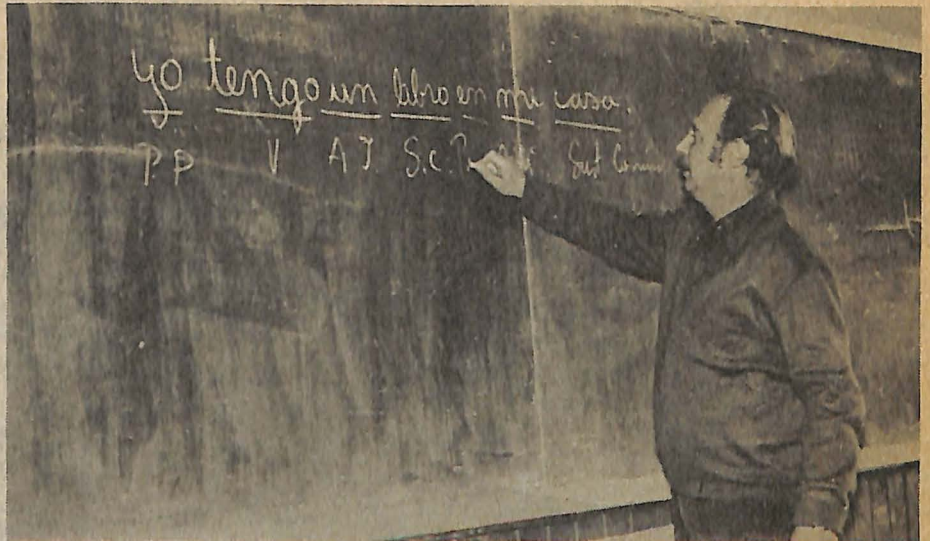 yo tengo un libro en mi casa.
p.p V A I. S.C. Sust Común